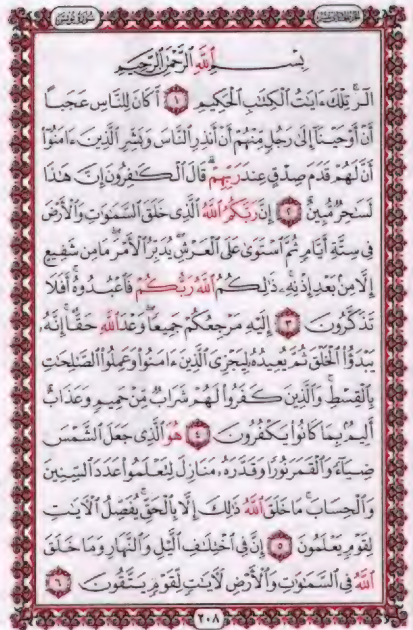 سُورَةُ يُونُسَ
بِسْمِ اللَّهِ الرَّحْمَٰنِ الرَّحِيمِ
الٓر ۚ تِلْكَ ءَايَٰتُ الْكِتَٰبِ الْحَكِيمِ ١ أَكَانَ لِلنَّاسِ عَجَبًا
أَنْ أَوْحَيْنَآ إِلَىٰ رَجُلٍ مِّنْهُمْ أَنْ أَنذِرِ النَّاسَ وَبَشِّرِ الَّذِينَ ءَامَنُوٓا۟
أَنَّ لَهُمْ قَدَمَ صِدْقٍ عِندَ رَبِّهِمْ ۗ قَالَ الْكَٰفِرُونَ إِنَّ هَٰذَا
لَسَٰحِرٌ مُّبِينٌ ٢ إِنَّ رَبَّكُمُ اللَّهُ الَّذِى خَلَقَ السَّمَٰوَٰتِ وَالْأَرْضَ
فِى سِتَّةِ أَيَّامٍ ثُمَّ اسْتَوَىٰ عَلَى الْعَرْشِ ۖ يُدَبِّرُ الْأَمْرَ ۖ مَا مِن شَفِيعٍ
إِلَّا مِنۢ بَعْدِ إِذْنِهِۦ ۚ ذَٰلِكُمُ اللَّهُ رَبُّكُمْ فَاعْبُدُوهُ ۚ أَفَلَا
تَذَكَّرُونَ ٣ إِلَيْهِ مَرْجِعُكُمْ جَمِيعًا ۖ وَعْدَ اللَّهِ حَقًّا ۚ إِنَّهُۥ
يَبْدَؤُا۟ الْخَلْقَ ثُمَّ يُعِيدُهُۥ لِيَجْزِىَ الَّذِينَ ءَامَنُوا۟ وَعَمِلُوا۟ الصَّٰلِحَٰتِ
بِالْقِسْطِ ۚ وَالَّذِينَ كَفَرُوا۟ لَهُمْ شَرَابٌ مِّنْ حَمِيمٍ وَعَذَابٌ
أَلِيمٌۢ بِمَا كَانُوا۟ يَكْفُرُونَ ٤ هُوَ الَّذِى جَعَلَ الشَّمْسَ
ضِيَآءً وَالْقَمَرَ نُورًا وَقَدَّرَهُۥ مَنَازِلَ لِتَعْلَمُوا۟ عَدَدَ السِّنِينَ
وَالْحِسَابَ ۚ مَا خَلَقَ اللَّهُ ذَٰلِكَ إِلَّا بِالْحَقِّ ۚ يُفَصِّلُ الْءَايَٰتِ
لِقَوْمٍ يَعْلَمُونَ ٥ إِنَّ فِى اخْتِلَٰفِ الَّيْلِ وَالنَّهَارِ وَمَا خَلَقَ
اللَّهُ فِى السَّمَٰوَٰتِ وَالْأَرْضِ لَءَايَٰتٍ لِّقَوْمٍ يَتَّقُونَ ٦
٢٠٨